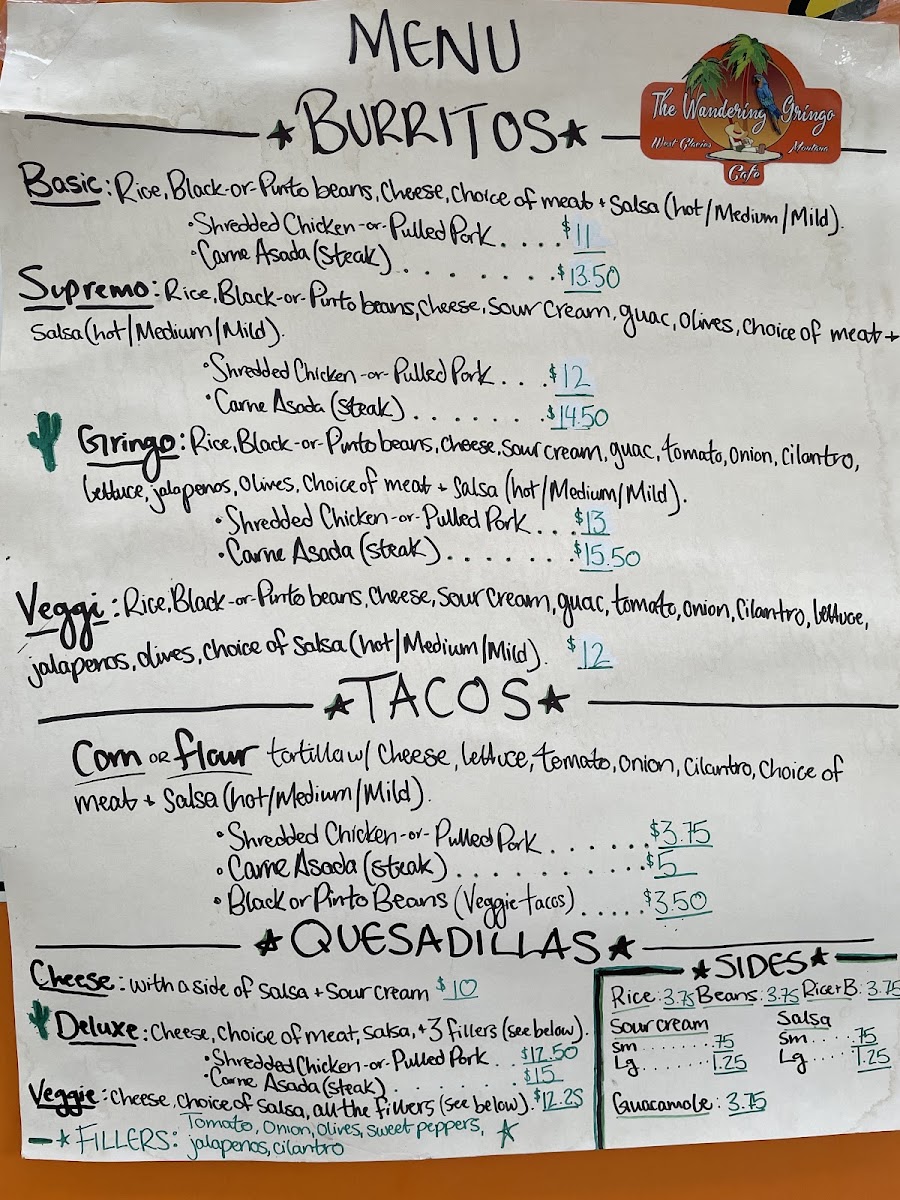 MENU
★BURRITOS★
The Wandering Gringo
West Glacier Montana
Cafe
Basic: Rice, Black-or-Pinto beans, Cheese, Choice of meat + Salsa (hot/Medium/Mild).
•Shredded Chicken-or-Pulled Pork....$11
•Carne Asada (steak).......$13.50
Supremo: Rice, Black-or-Pinto beans, Cheese, Sour Cream, guac, Olives, Choice of meat +
Salsa (hot/Medium/Mild).
•Shredded Chicken-or-Pulled Pork...$12
•Carne Asada (steak).......$14.50
Gringo: Rice, Black-or-Pinto beans, Cheese, Sour cream, guac, tomato, Onion, Cilantro,
lettuce, jalapenos, Olives, Choice of meat + Salsa (hot/Medium/Mild).
•Shredded Chicken-or-Pulled Pork...$13
•Carne Asada (steak).......$15.50
Veggi: Rice, Black-or-Pinto beans, Cheese, Sour Cream, guac, tomato, Onion, Cilantro, lettuce,
jalapenos, olives, Choice of Salsa (hot/Medium/Mild). $12
★TACOS★
Corn OR flour tortilla w/ Cheese, lettuce, tomato, Onion, Cilantro, Choice of
meat + Salsa (hot/Medium/Mild).
•Shredded Chicken-or-Pulled Pork......$3.75
•Carne Asada (steak)..........$5
•Black or Pinto Beans (Veggie tacos).....$3.50
★QUESADILLAS★
Cheese: with a side of Salsa + Sour Cream $10
Deluxe: Cheese, Choice of meat, Salsa, +3 fillers (see below).
•Shredded Chicken-or-Pulled Pork..$12.50
•Carne Asada (steak).........$15
Veggie: Cheese, Choice of Salsa, all the fillers (see below). $12.25
★FILLERS: Tomato, Onion, Olives, sweet peppers,
jalapenos, cilantro
★SIDES★
Rice: 3.75 Beans: 3.75 Rice+B: 3.75
Sour cream
Sm.......75
Lg......1.25
Salsa
Sm.....75
Lg.....1.25
Guacamole: 3.75